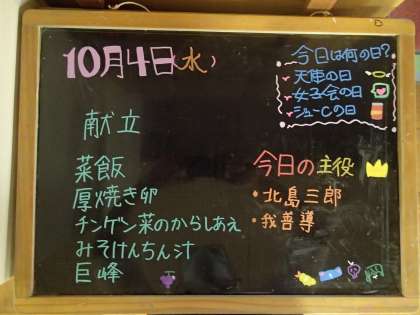 10月4日(水)
今日は何の日?
天使の日
女子会の日
ジューCの日
献立
菜飯
厚焼き卵
チンゲン菜のからしあえ
みそけんちん汁
巨峰
今日の主役
・北島三郎
・我善導